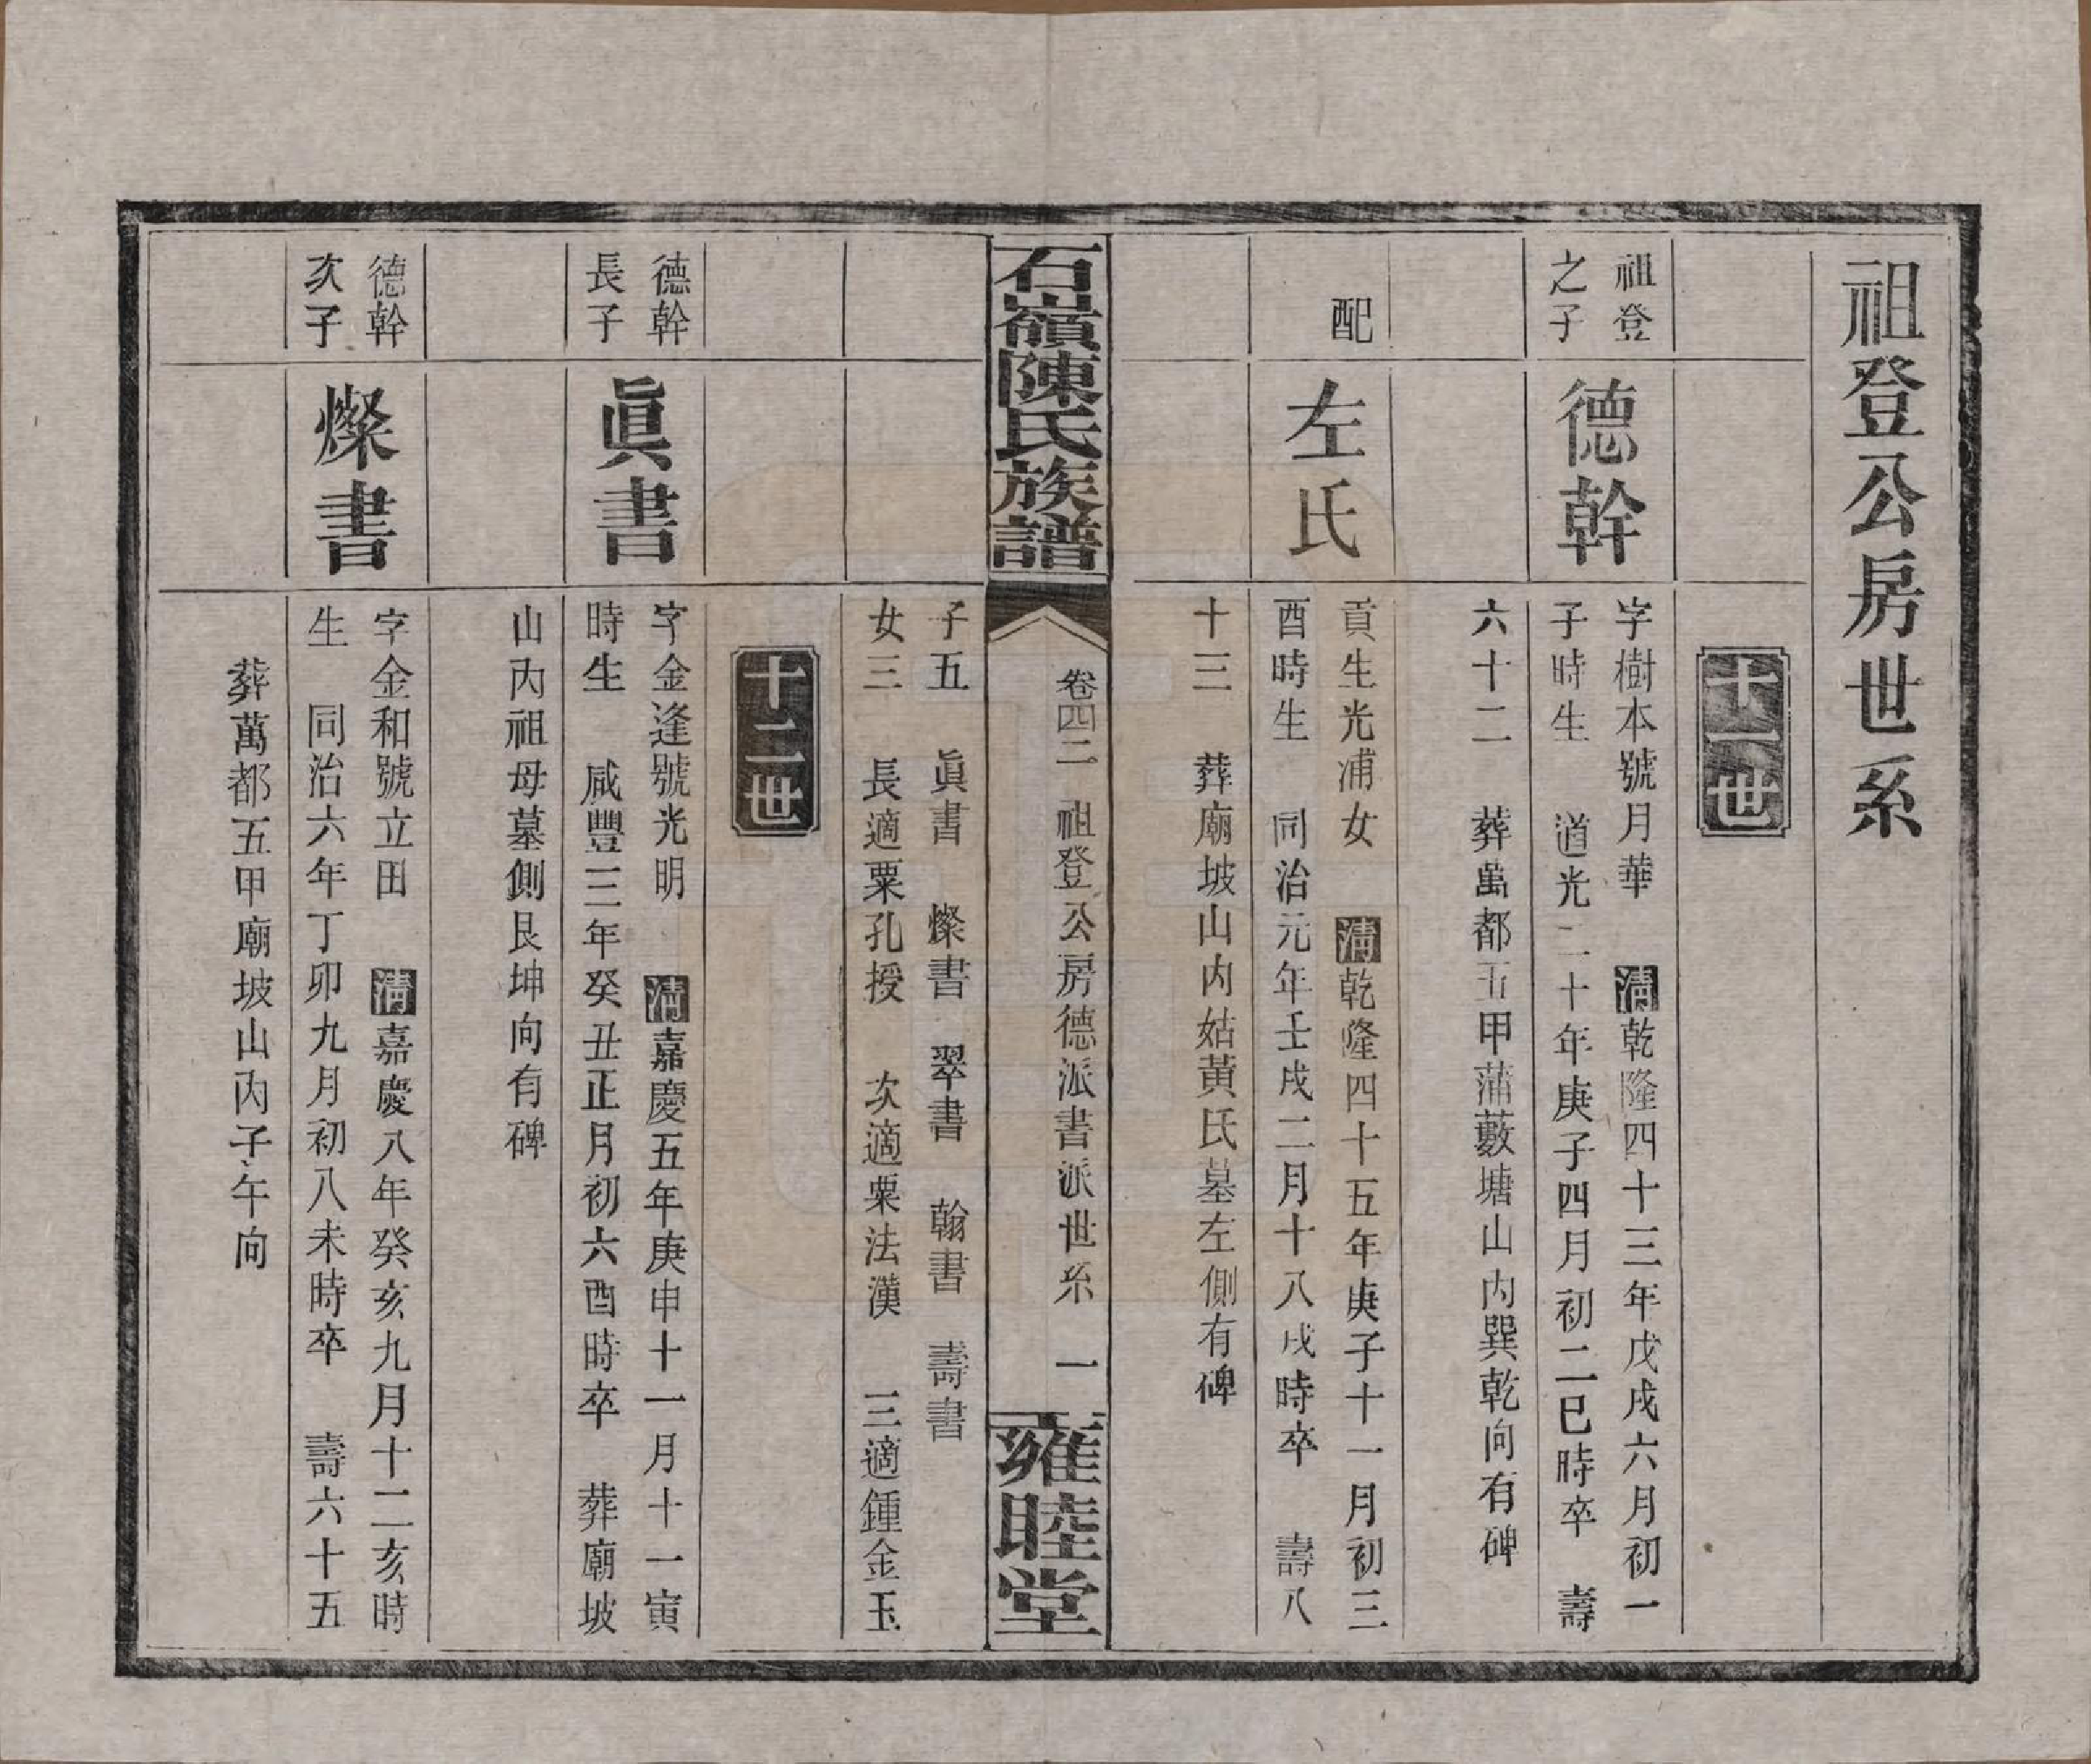 祖登公房世系
十一世
祖登
之子
德幹
字樹本號月華　清乾隆四十三年戊戌六月初一
子時生　道光二十年庚子四月初二巳時卒　壽
六十二　葬萬都五甲蒲藪塘山內巽乾向有碑
配
左氏
貢生光浦女　清乾隆四十五年庚子十一月初三
酉時生　同治元年壬戌二月十八戌時卒　壽八
十三　葬廟坡山內姑黃氏墓左側有碑
石嶺陳氏族譜
卷四二　祖登公房德派書派世系　一
雍睦堂
子五　眞書　燦書　翠書　翰書　壽書
女三　長適粟孔授　次適粟法漢　三適鍾金玉
十二世
德幹
長子
眞書
字金逢號光明　清嘉慶五年庚申十一月十一寅
時生　咸豐三年癸丑正月初六酉時卒　葬廟坡
山內祖母墓側艮坤向有碑
德幹
次子
燦書
字金和號立田　清嘉慶八年癸亥九月十二亥時
生　同治六年丁卯九月初八未時卒　壽六十五
葬萬都五甲廟坡山內子午向